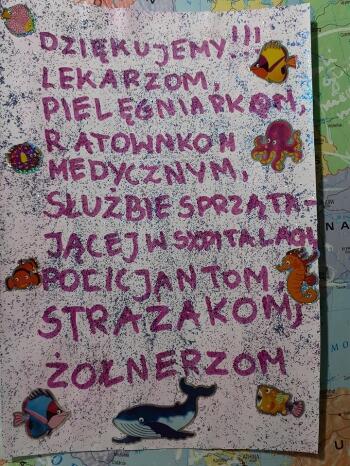 DZIĘKUJEMY!!!
LEKARZOM,
PIELĘGNIARKOM,
RATOWNKOM
MEDYCZNYM,
SŁUŻBIE SPRZĄTA-
JĄCEJ W SZPITALACH,
POLICJANTOM,
STRAŻAKOM,
ŻOŁNERZOM